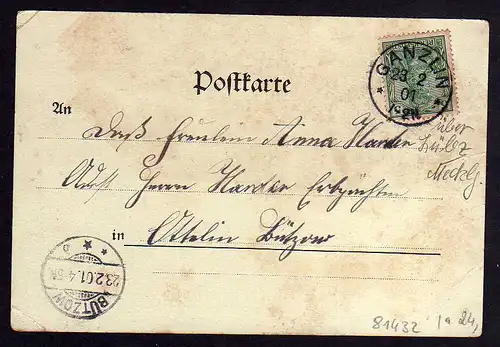 Postkarte
GANZLIN
23 2
01
An
Das Fräulein Anna Harder
über
Lübz
Adr Herrn Harder Erbpächter
Mecklg.
in Bützow
BÜTZOW
23.2.01.4-5N
81432
24,